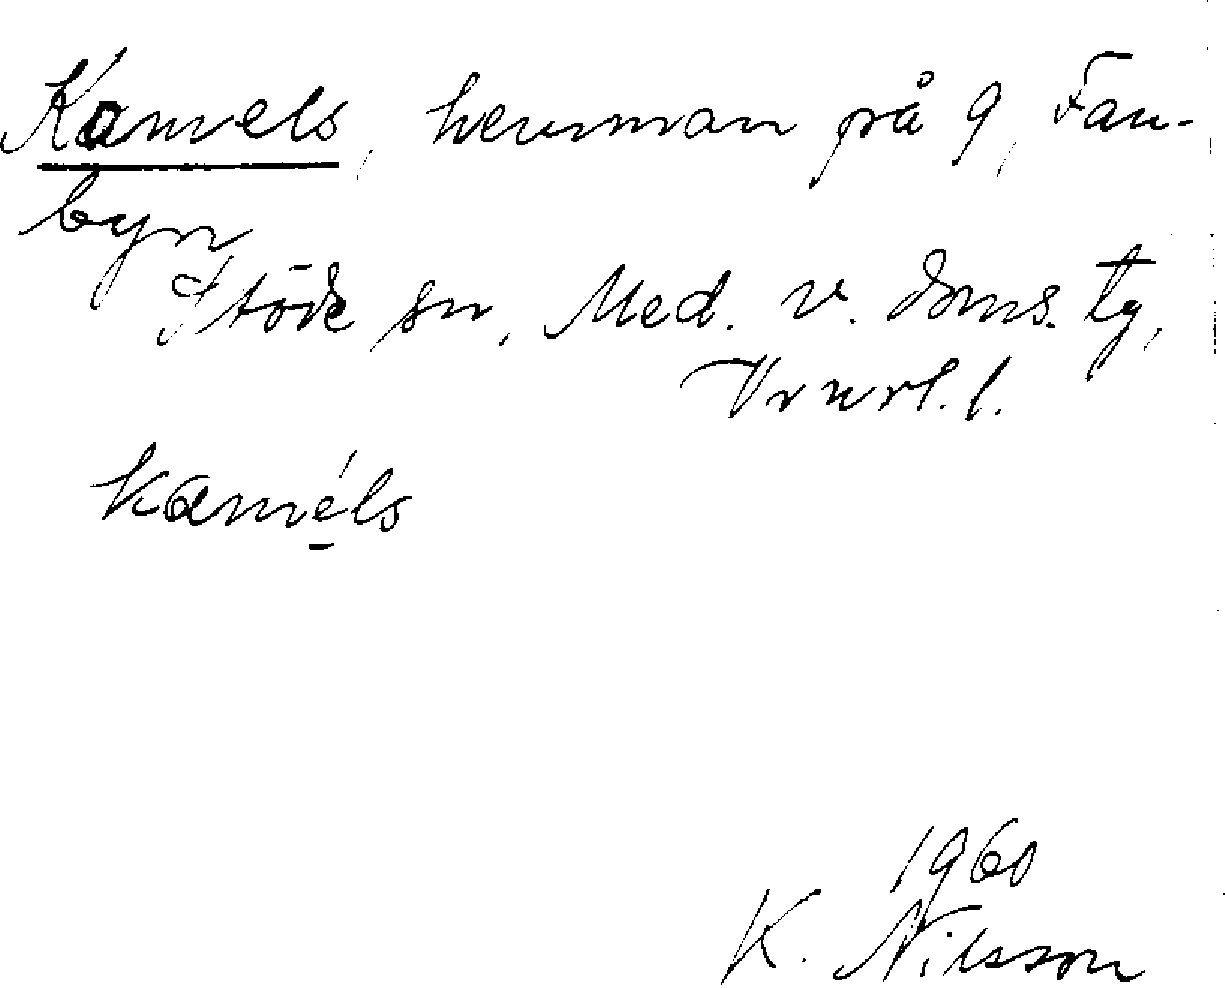 Kamels, hemman på 9, Fan-
byn
Stöde sn, Med. v. doms. tg,
Vnrl. l.
kaméls
1960
K. Nilsson